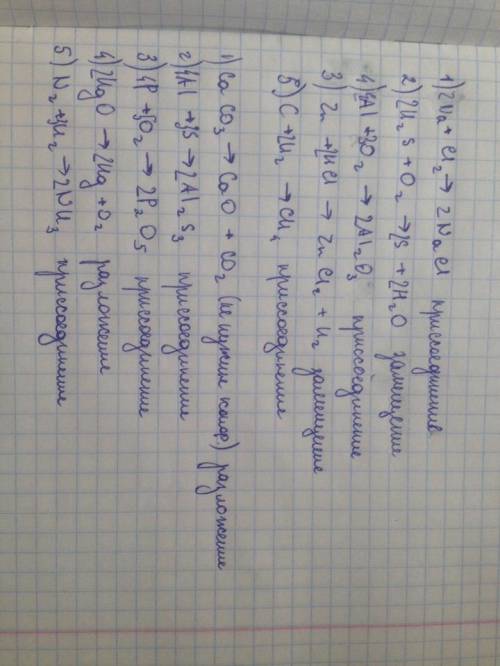 1) 2Na + Cl₂ → 2NaCl присоединение
2) 2H₂S + O₂ → 2S + 2H₂O замещение
4) 4Al + 3O₂ → 2Al₂O₃ приссоединение
3) Zn + 2HCl → ZnCl₂ + H₂ замещение
5) C + 2H₂ → CH₄ приссоединение
1) CaCO₃ → CaO + CO₂ (не нужны коэф) разложение
2) 4Al + 3S → 2Al₂S₃ приссоединение
3) 4P + 5O₂ → 2P₂O₅ присоединение
4) 2HgO → 2Hg + O₂ разложение
5) N₂ + 3H₂ → 2NH₃ приссоединение